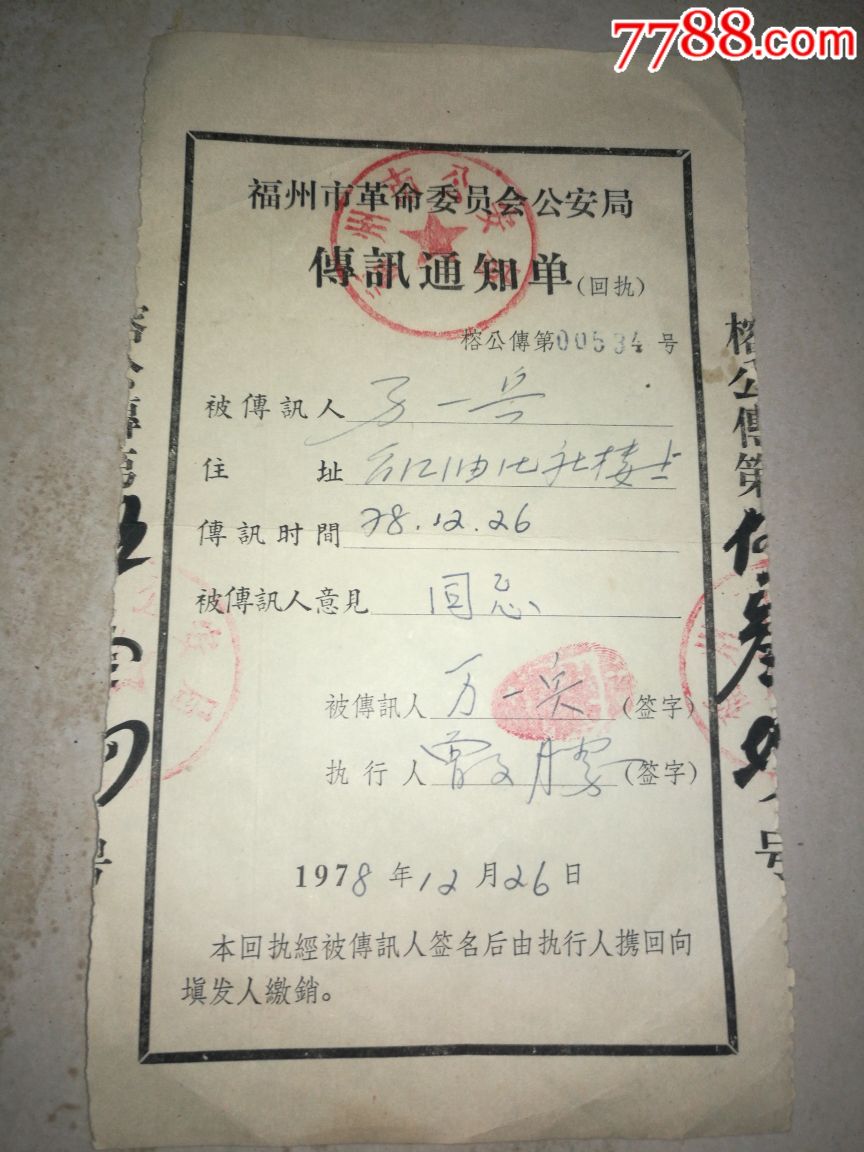 7788.com
福州市革命委员会公安局
傳訊通知单(回执)
榕公傳第00534号
被傳訊人 万一兵
住址 台江油化社楼上
傳訊时間 78.12.26
被傳訊人意見 同意
被傳訊人 万一兵 (签字)
执行人 曾文勝 (签字)
1978年12月26日
本回执經被傳訊人签名后由执行人携回向
塡发人繳銷。
榕公傳第
号